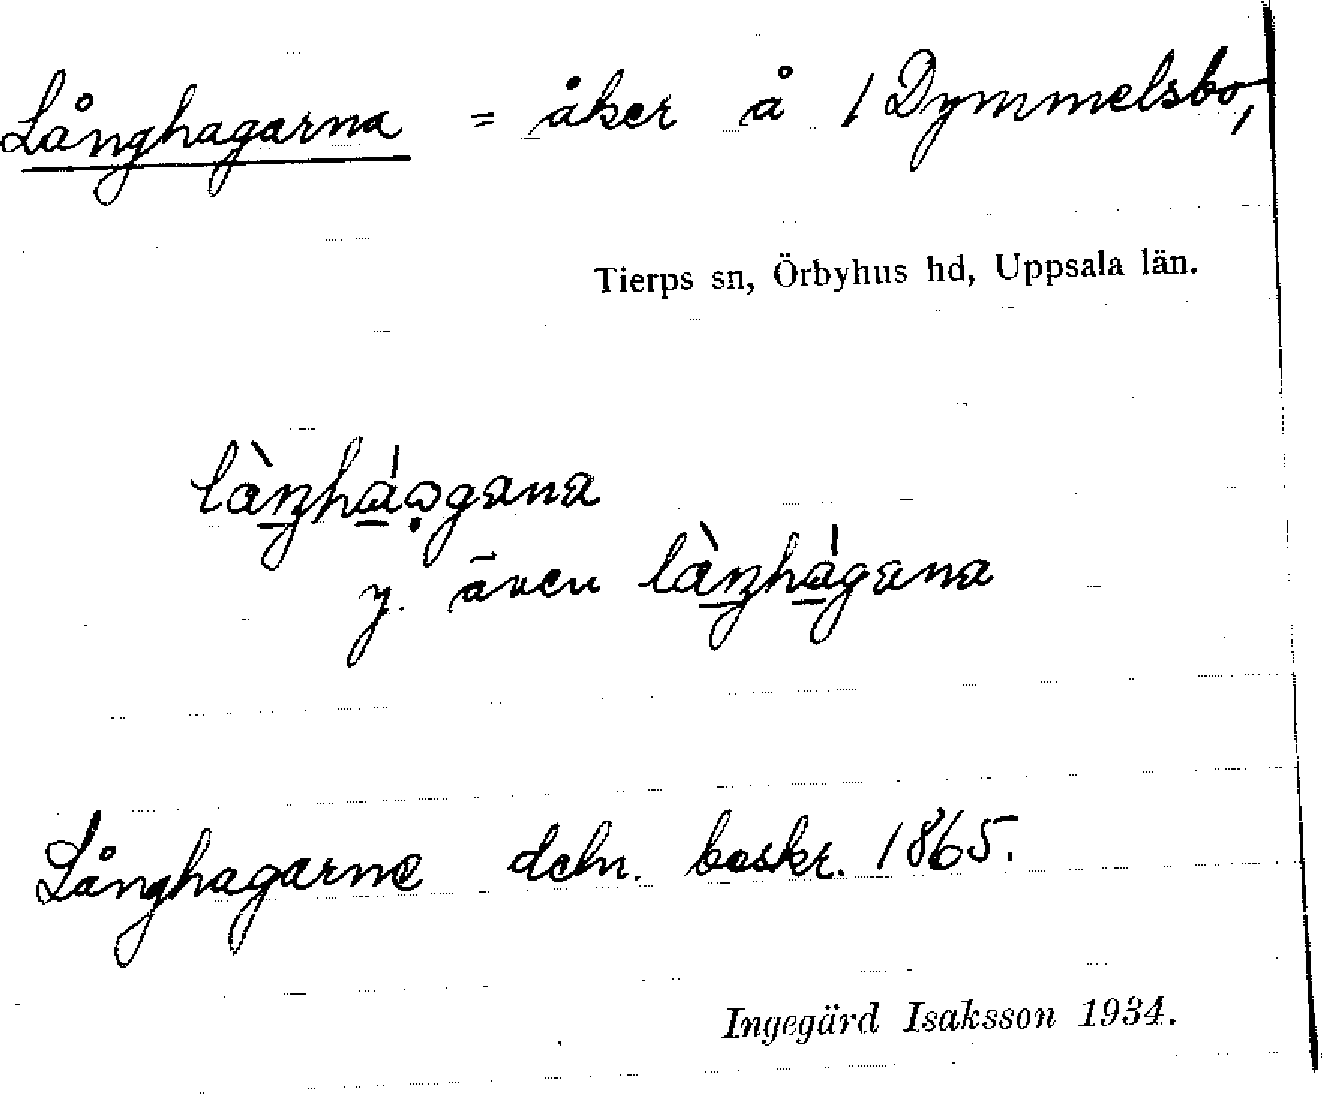 Långhagarna = åker å 1 Dymmelsbo,
Tierps sn, Örbyhus hd, Uppsala län.
y. även
Långhagarne deln. beskr. 1865.
Ingegärd Isaksson 1934.